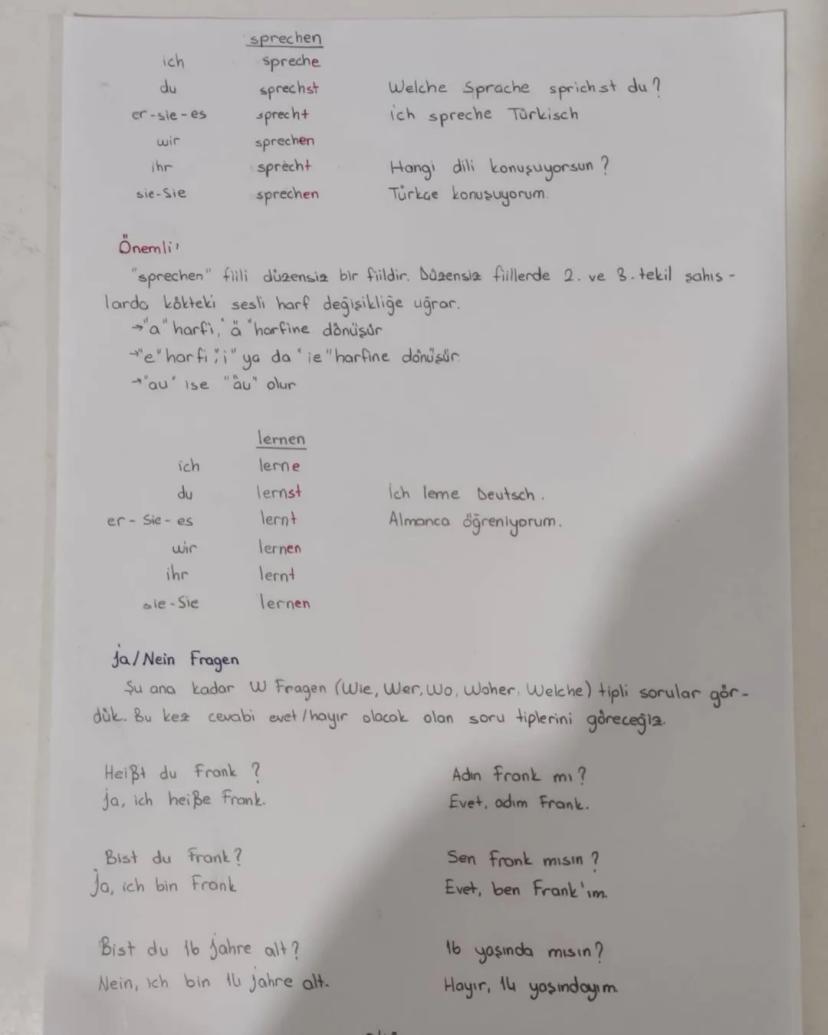 sprechen
ich spreche
du sprechst Welche Sprache sprichst du?
er-sie-es sprecht ich spreche Türkisch
wir sprechen
ihr sprecht Hangi dili konuşuyorsun?
sie-Sie sprechen Türkçe konuşuyorum.
Önemli!
"sprechen" fiili düzensiz bir fiildir. Düzensiz fiillerde 2. ve 3. tekil şahıs-
larda kökteki sesli harf değişikliğe uğrar.
→"a" harfi, "ä" harfine dönüşür
→"e" harfi "i" ya da "ie" harfine dönüşür.
→"au" ise "äu" olur
lernen
ich lerne
du lernst Ich lerne Deutsch.
er-Sie-es lernt Almanca öğreniyorum.
wir lernen
ihr lernt
sie-Sie lernen
Ja/Nein Fragen
Şu ana kadar W Fragen (Wie, Wer, Wo, Woher, Welche) tipli sorular gör-
dük. Bu kez cevabi evet/hayır olacak olan soru tiplerini göreceğiz.
Heißt du Frank? Adın Frank mı?
Ja, ich heiße Frank. Evet, adım Frank.
Bist du Frank? Sen Frank mısın?
Ja, ich bin Frank Evet, ben Frank'ım.
Bist du 16 Jahre alt? 16 yaşında mısın?
Nein, ich bin 14 jahre alt. Hayır, 14 yaşındayım